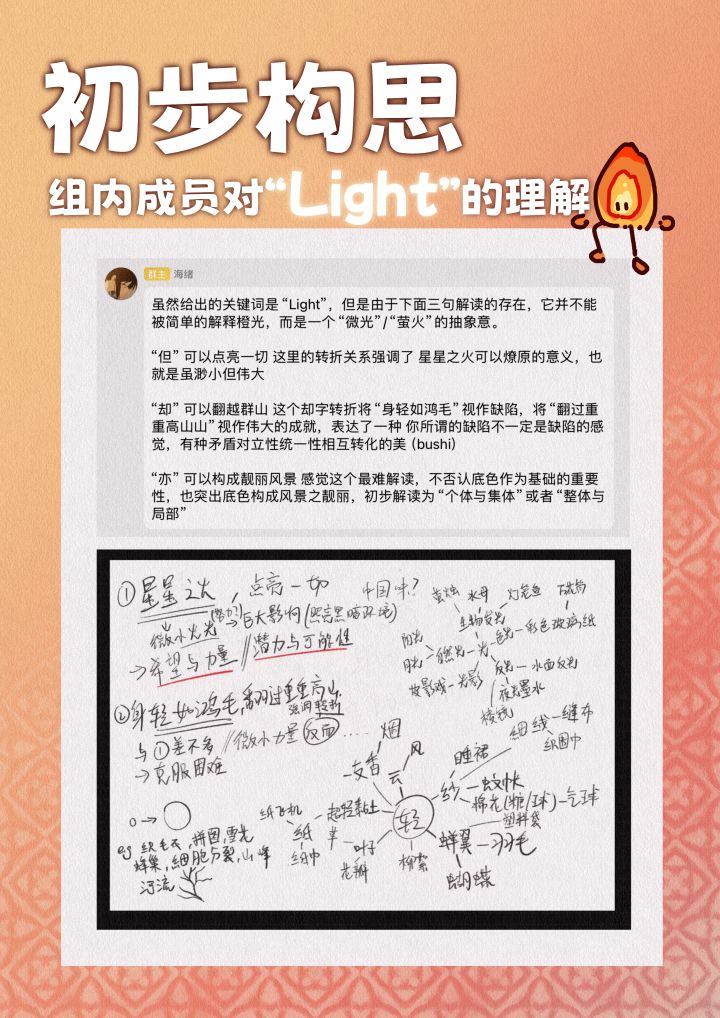 初步构思
组内成员对“Light”的理解
群主 海绪
虽然给出的关键词是“Light”，但是由于下面三句解读的存在，它并不能
被简单的解释橙光，而是一个“微光”/“萤火”的抽象意。
“但” 可以点亮一切 这里的转折关系强调了 星星之火可以燎原的意义，也
就是虽渺小但伟大
“却” 可以翻越群山 这个却字转折将“身轻如鸿毛”视作缺陷，将“翻过重
重高山山”视作伟大的成就，表达了一种 你所谓的缺陷不一定是缺陷的感
觉，有种矛盾对立性统一性相互转化的美（bushi）
“亦” 可以构成靓丽风景 感觉这个最难解读，不否认底色作为基础的重要
性，也突出底色构成风景之靓丽，初步解读为“个体与集体”或者“整体与
局部”
①星星之火，点亮一切 中国味?
微小火光 → 巨大影响(照亮黑暗环境)
→希望与力量 //潜力与可能性
萤烛 水母 灯笼鱼
生物发光
阳光
月光—自然光—光—色光—彩色玻璃纸
皮影戏—光影
反光—水面反光
夜光墨水
②身轻如鸿毛,翻过重重高山
强调转折
与①差不多 //微小力量 反面....
→克服困难
细线—缝布
织围巾
烟
风
云
一支香
睡裙
纱—蚊帐
棉花(糖/球)—气球
塑料袋
轻
蝉翼—羽毛
蝴蝶
柳絮
叶子
花瓣
超轻黏土
纸飞机
纸
纸巾
0→
eg 织毛衣,拼图,雪花
蜂巢,细胞分裂,山峰
河流